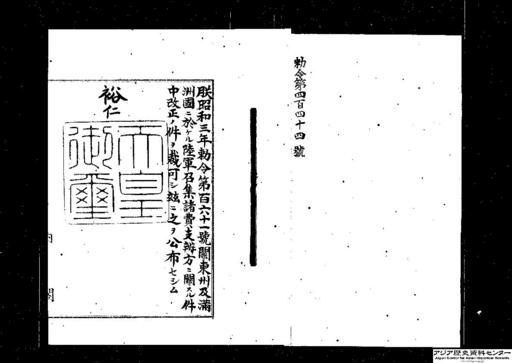 勅令第四百四十四號
朕昭和三年勅令第百六十一號關東州及滿
洲國ニ於ケル陸軍召集諸費支辨方ニ關スル件
中改正ノ件ヲ裁可シ玆ニ之ヲ公布セシム
裕仁
天皇
御璽
内閣
アジア歴史資料センター
Japan Center for Asian Historical Records